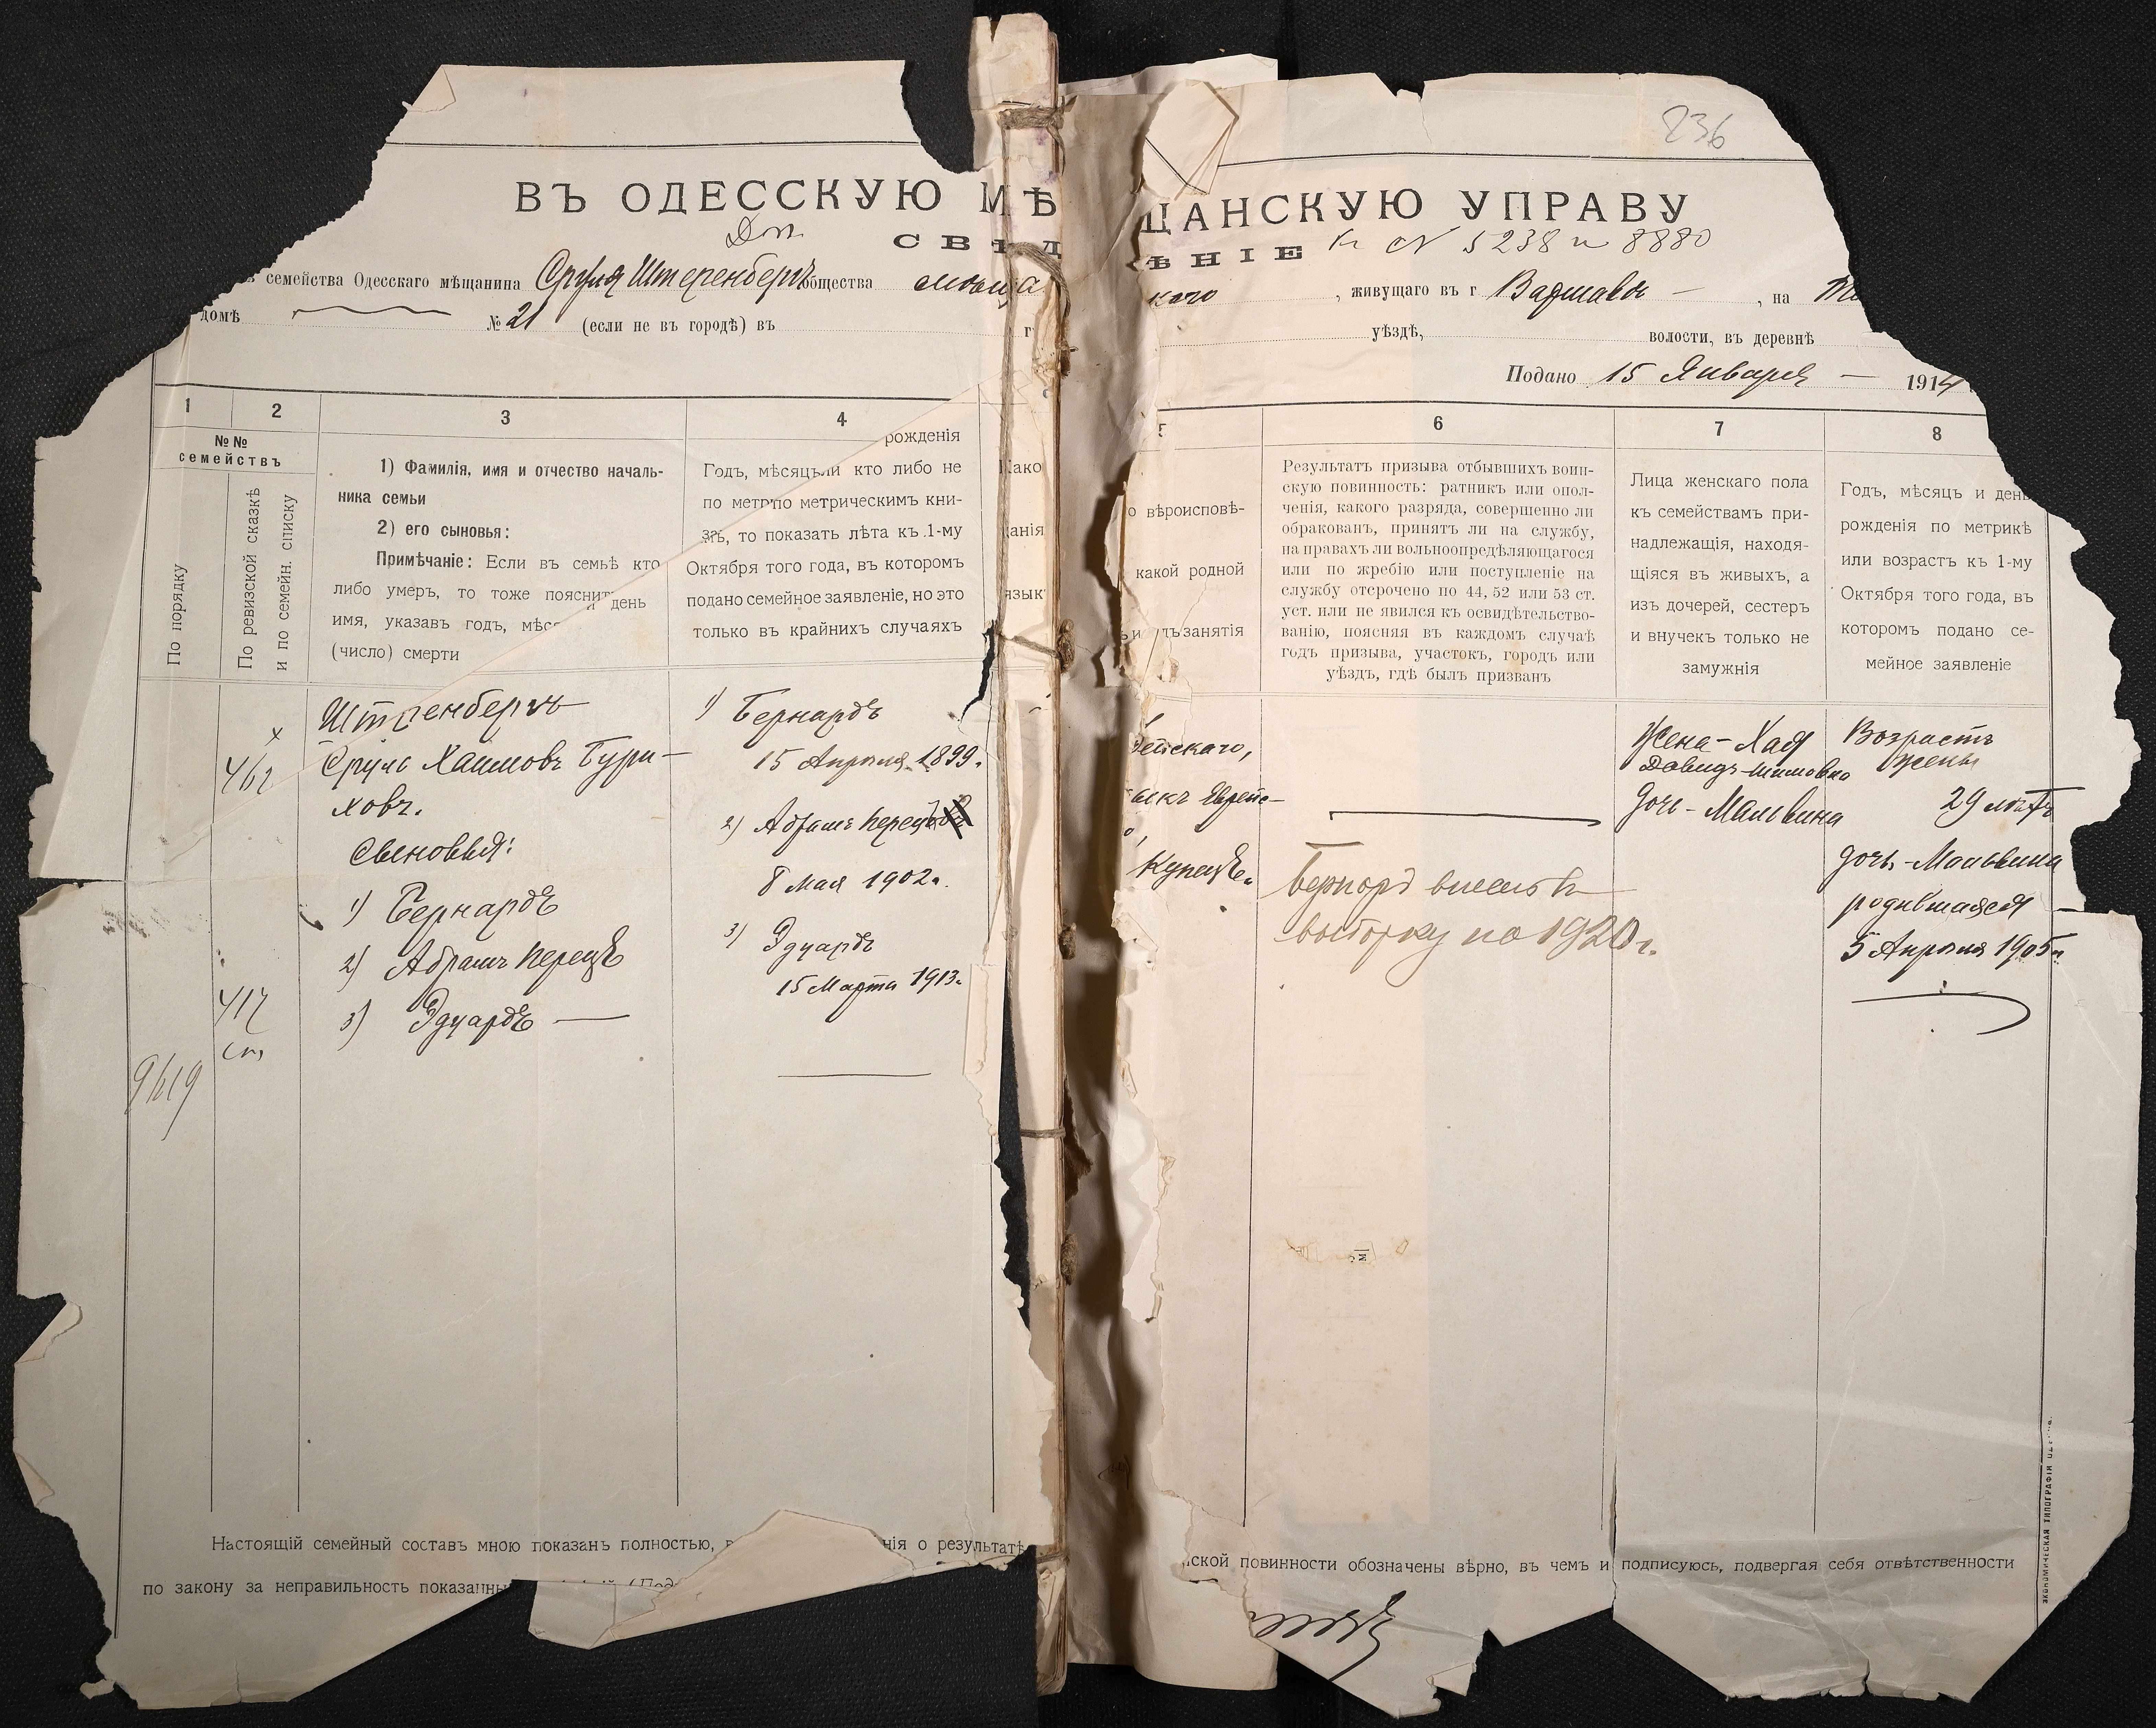 236
ВЪ ОДЕССКУЮ МѢЩАНСКУЮ УПРАВУ
Доп. СВѢДѢНІЕ к № 5238 и 8880
семейства Одесскаго мѣщанина Сруля Штеренбергъ общества мѣща каго, живущаго въ г Варшавѣ — , на
домѣ № 21 (если не въ городѣ) въ уѣздѣ, волости, въ деревнѣ
Подано 15 Января — 1914
1 2 3 4
№№
семействъ
По порядку
По ревизской сказкѣ
и по семейн. списку
1) Фамилія, имя и отчество началь-
ника семьи
2) его сыновья:
Примѣчаніе: Если въ семьѣ кто
либо умеръ, то тоже пояснит
и день
имя, указавъ годъ, мѣс
(число) смерти
рожденія
Годъ, мѣсяц ли кто либо не
по метр по метрическимъ кни-
то показать лѣта къ 1-му
Октября того года, въ которомъ
подано семейное заявленіе, но это
только въ крайнихъ случаяхъ
Како
данія
язык
5 6 7 8
о вѣроисповѣ-
какой родной
ъ занятія
Результатъ призыва отбывшихъ воин-
скую повинность: ратникъ или опол-
ченія, какого разряда, совершенно ли
обракованъ, принятъ ли на службу,
на правахъ ли вольноопредѣляющагося
или по жребію или поступленіе на
службу отсрочено по 44, 52 или 53 ст.
уст. или не явился къ освидѣтельство-
ванію, поясняя въ каждомъ случаѣ
годъ призыва, участокъ, городъ или
уѣздъ, гдѣ былъ призванъ
Лица женскаго пола
къ семействамъ при-
надлежащія, находя-
щіяся въ живыхъ, а
изъ дочерей, сестеръ
и внучекъ только не
замужнія
Годъ, мѣсяцъ и день
рожденія по метрикѣ
или возрастъ къ 1-му
Октября того года, въ
которомъ подано се-
мейное заявленіе
х
462
417
ст
9619
Штеренбергъ
Сруль Хаимовъ Бури-
ховъ.
Сыновья:
1) Бернардъ
2) Абрамъ Перецъ
3) Эдуардъ —
1) Бернардъ
15 Апрѣля 1899.
2) Абрамъ Перецъ
8 Мая 1902г.
3) Эдуардъ
15 Марта 1913.
ейскаго,
зыкъ Еврейс-
о,
Купецъ.
Бернард внесенъ в
выборку по 1920 г.
Жена - Хая
Давидъ-Шимовна
дочь - Мальвина
Возрастъ
жены
29 лѣтъ
дочь - Мальвина
родившаяся —
5 Апрѣля 1905г.
Настоящій семейный составъ мною показанъ полностью, нія о результатѣ ской повинности обозначены вѣрно, въ чемъ и подписуюсь, подвергая себя отвѣтственности
по закону за неправильность показанны
ЭКОНОМИЧЕСКАЯ ТИПОГРАФІЯ